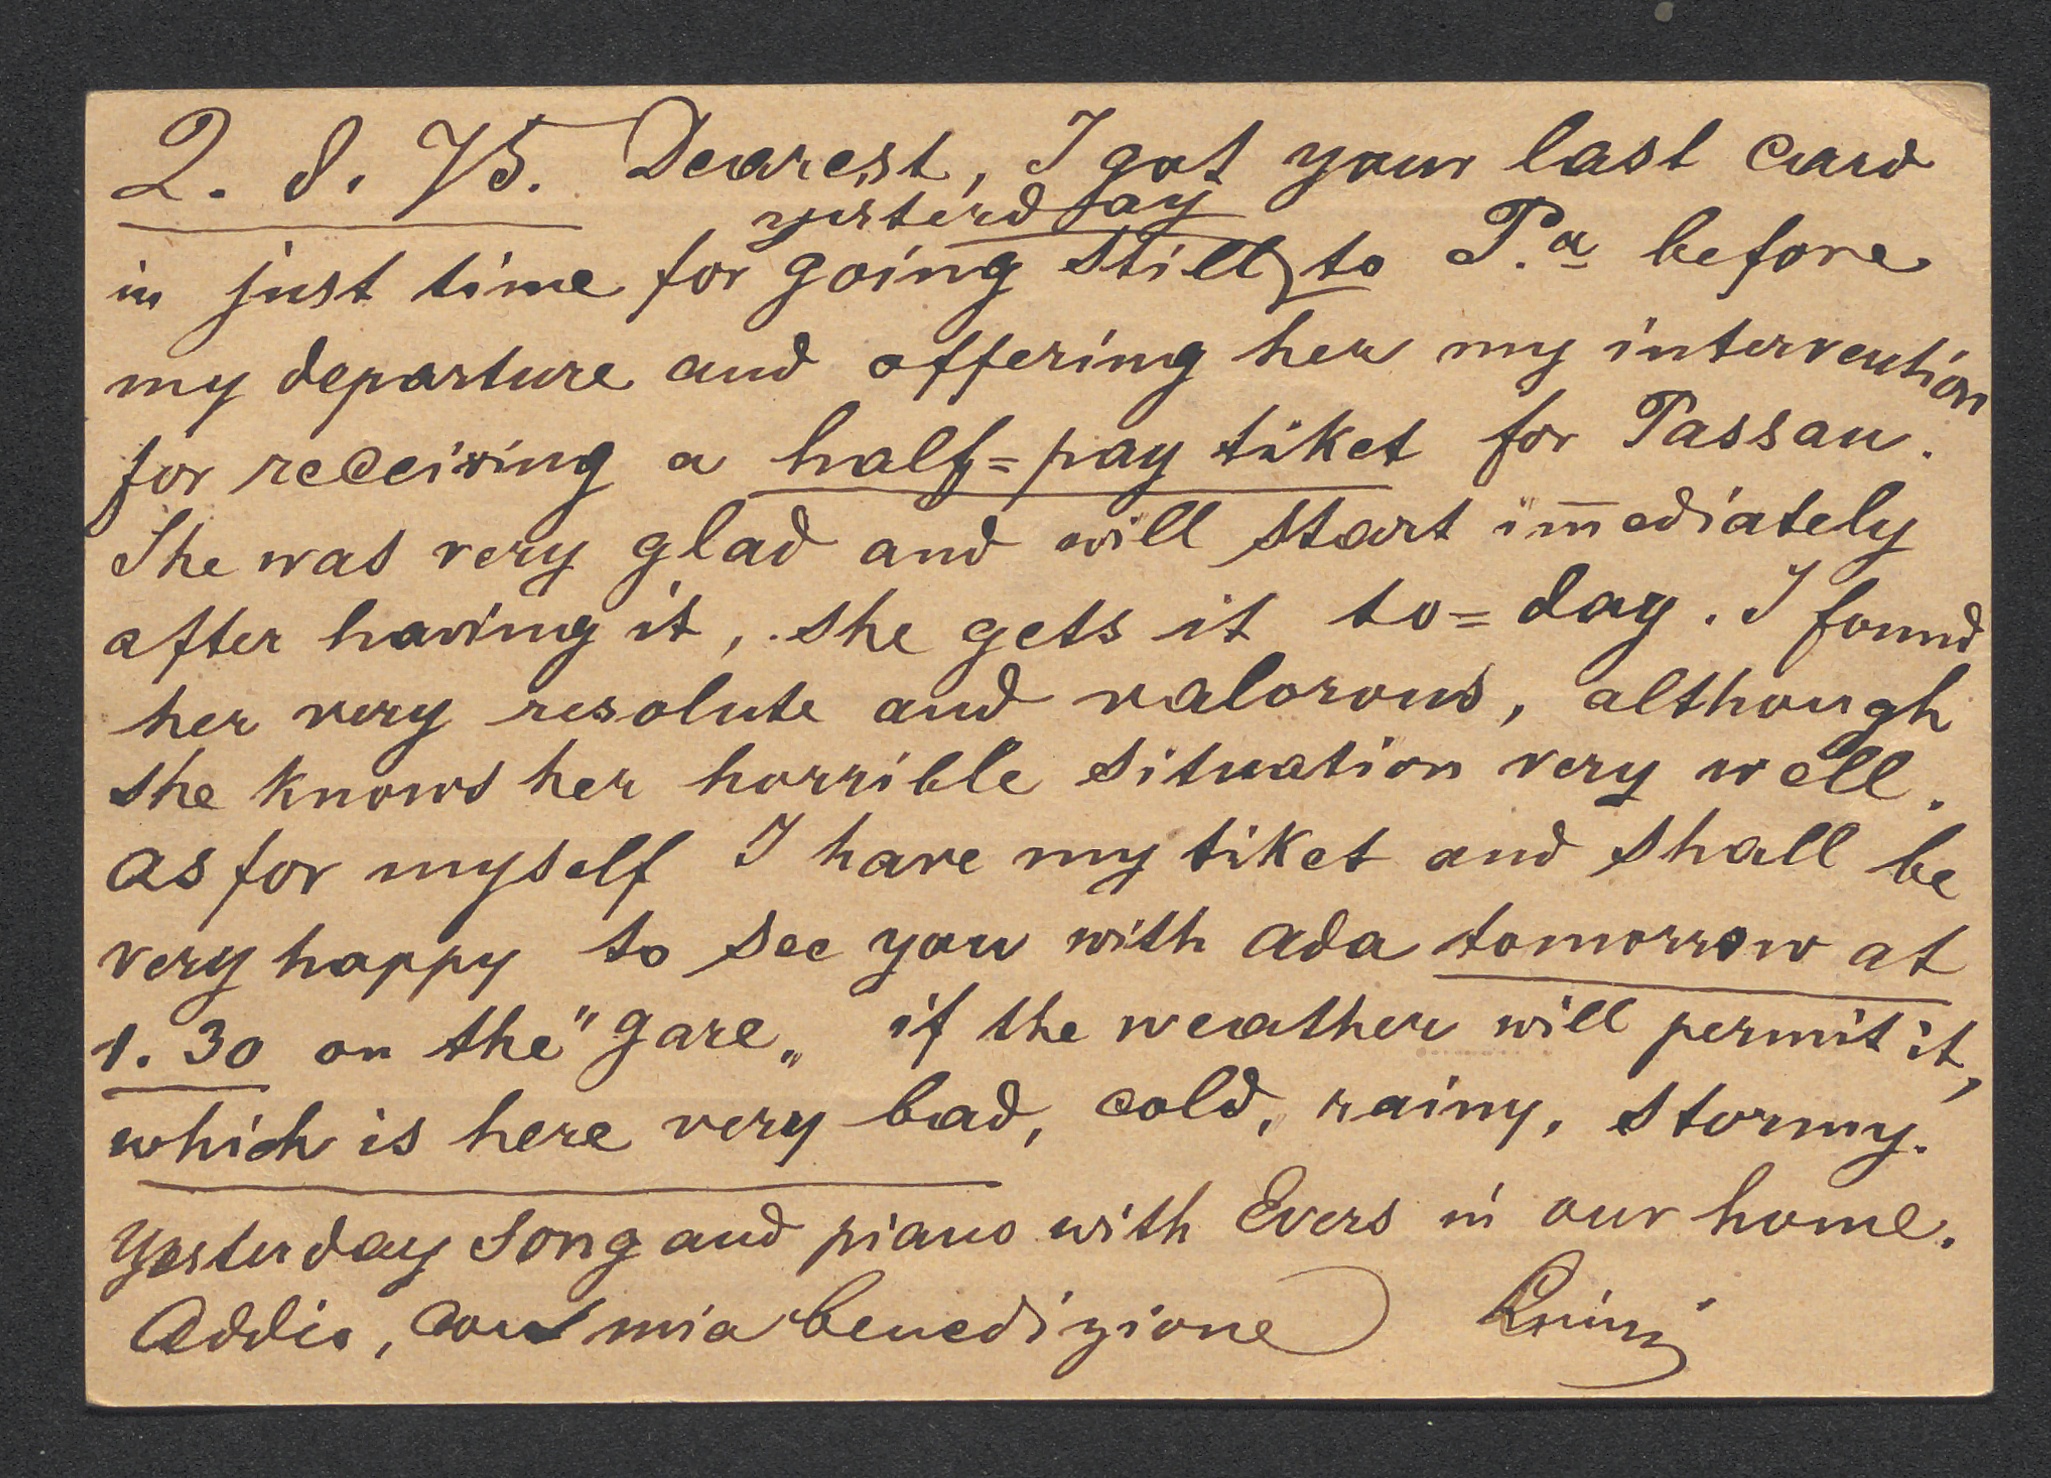 2. 8. 75. Dearest, I got your last card
yesterday
in just time for going still to P.a before
my departure and offering her my intervention
for receiving a half=pay tiket for Passau.
She was very glad and will start im̅ediately
after having it, she gets it to=day. I found
her very resolute and valorous, although
she knows her horrible situation very well.
As for myself I have my tiket and shall be
very happy to see you with Ada tomorrow at
1.30 on the "gare„ if the weather will permit it,
which is here very bad, cold, rainy, stormy.
Yesterday song and piano with Evers in our home.
Addio, con mia benedizione